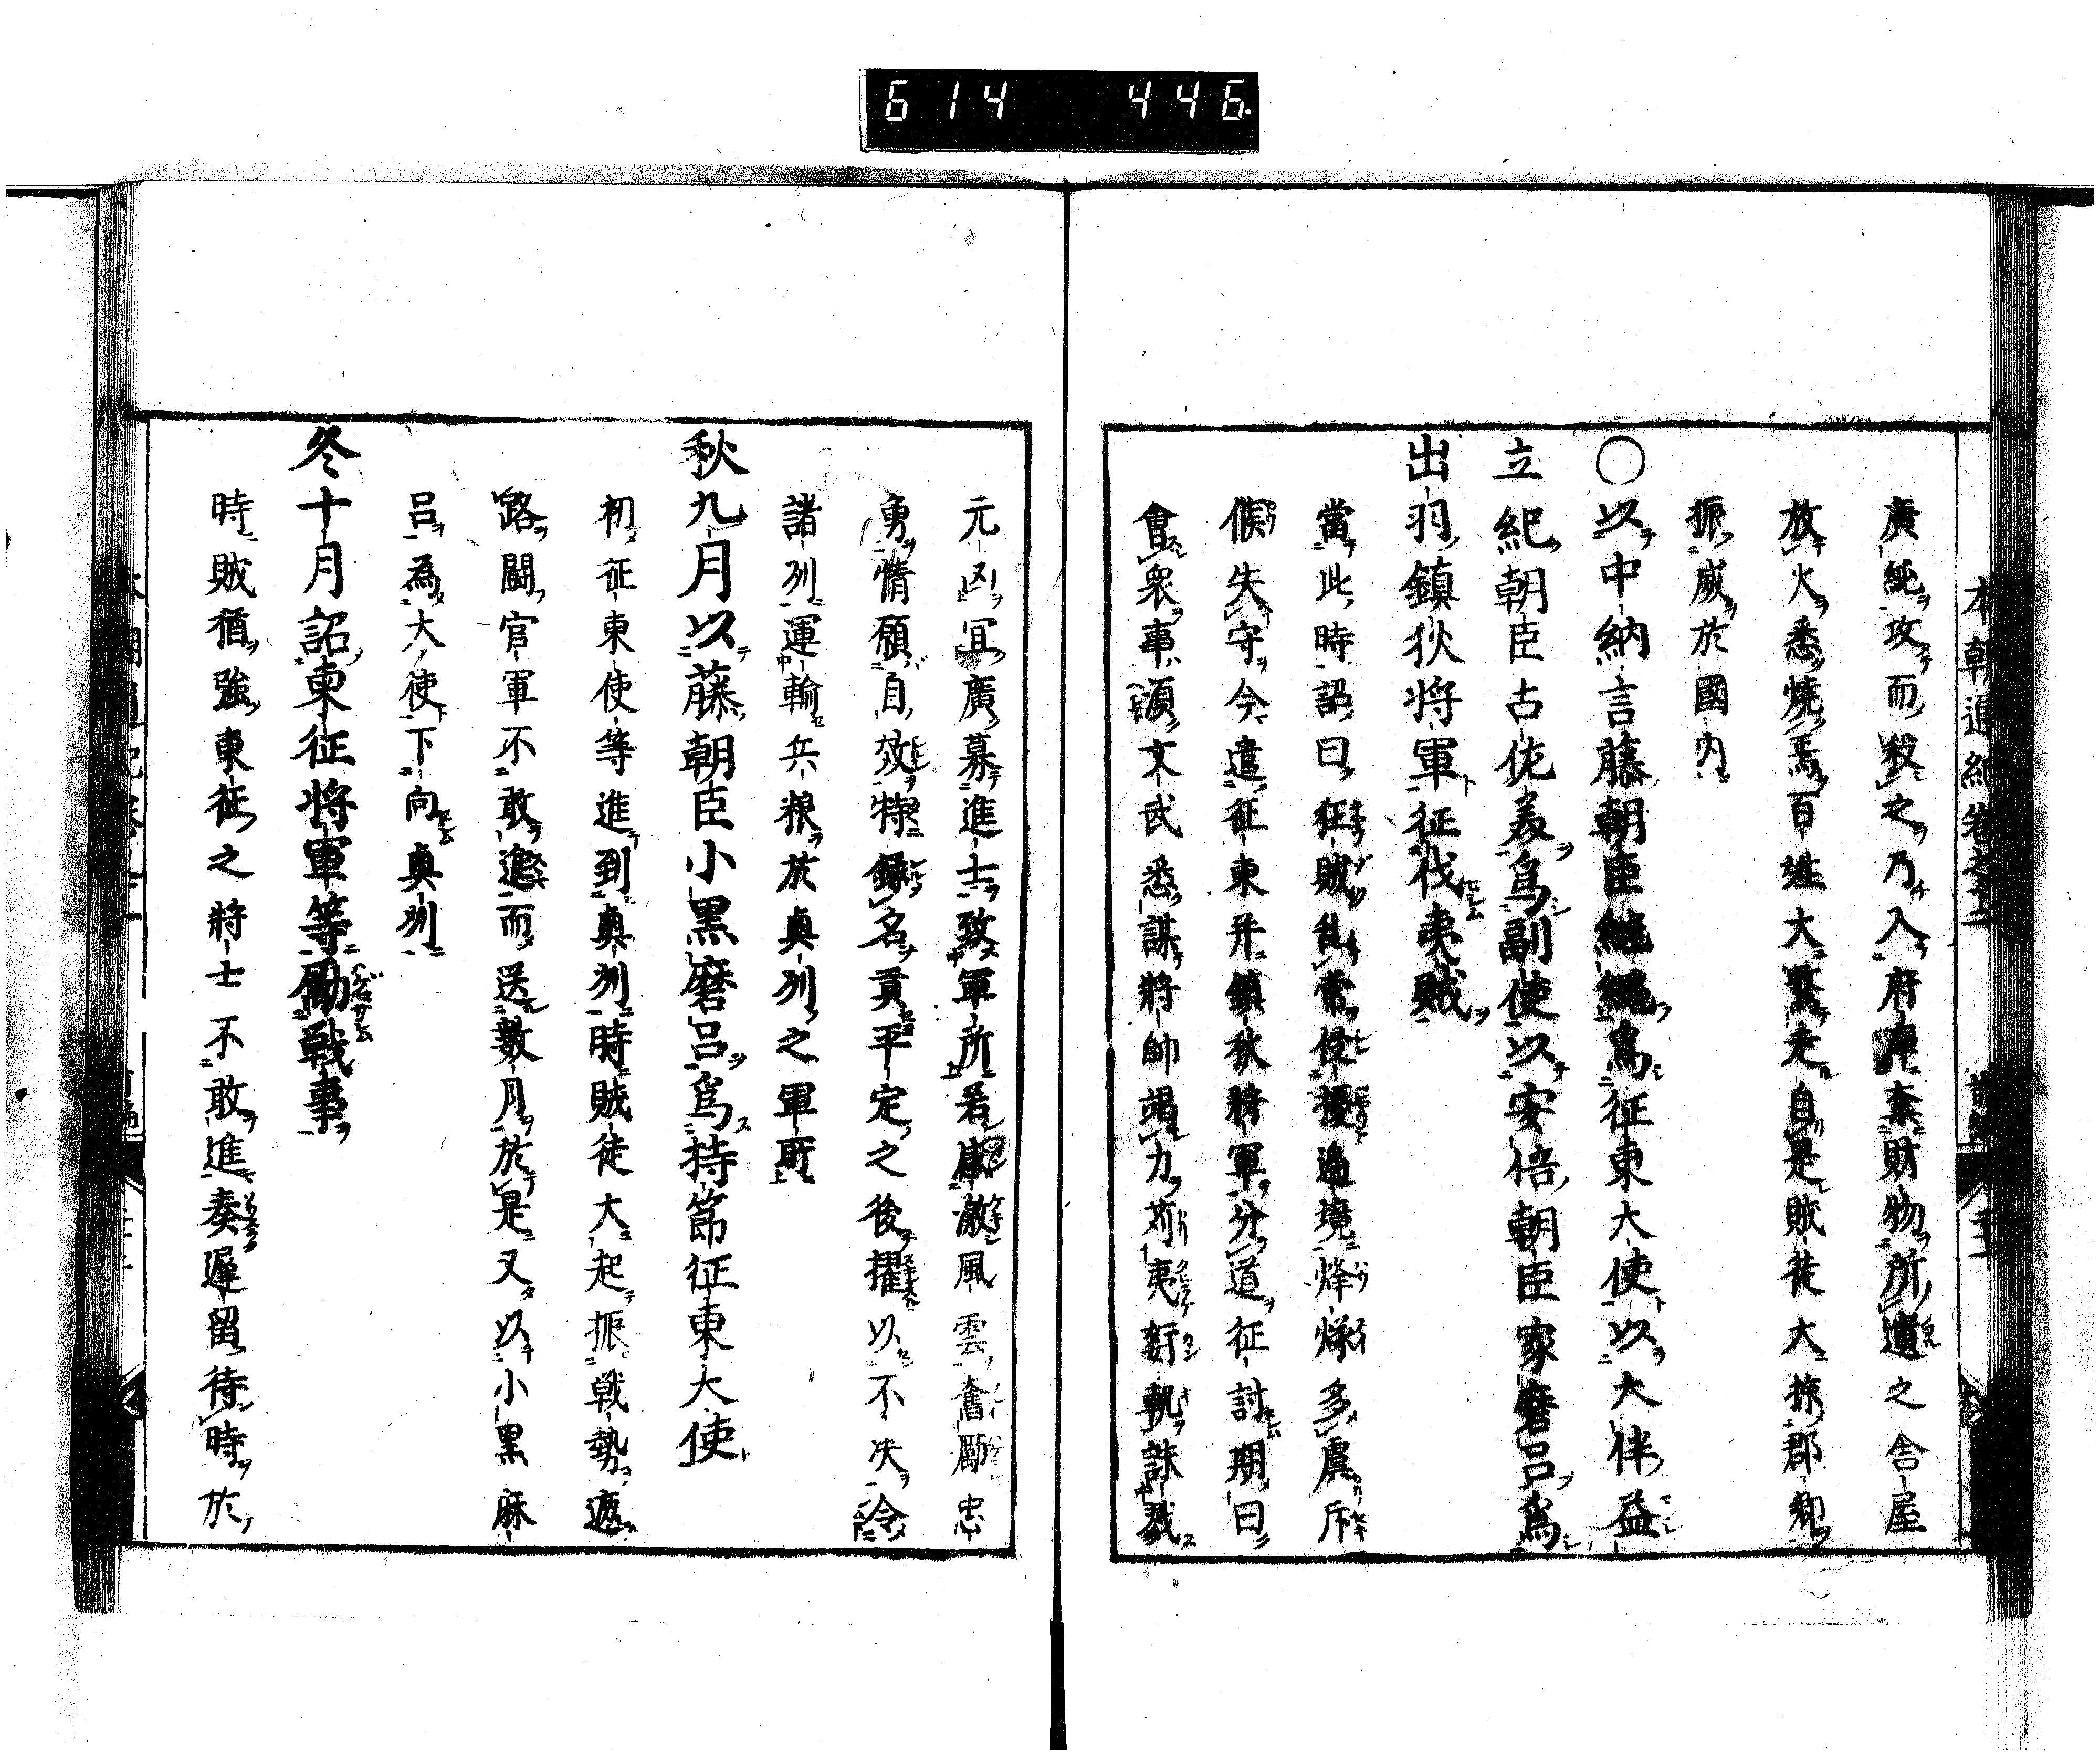 614 446
本朝通紀卷之十二 前編
廣純攻而殺之乃入府庫奪財物所遺之舎屋
放火悉燒焉百姓大驚走自是賊徒大掠郡郷
振威於國内
〇以中納言藤朝臣繼繩爲征東大使以大伴益
立紀朝臣古佐美爲副使以安倍朝臣家麿呂爲
出羽鎮狄将軍征伐夷賊
當此時詔曰狂賊乱常侵擾邊境烽燧多虞斥
候失守今遣征東并鎮狄将軍分道征討期日
會衆事須文武悉謀將帥竭力苅夷姧軌誅戮
元凶宜廣募進士致軍所若感激風雲奮厲忠
勇情願自效特録名貢平定之後擢以不次令
諸州運輸兵粮於奥州之軍所
秋九月以藤朝臣小黒磨呂爲持節征東大使
初征東使等進到奥州時賊徒大起振戦勢遮
路闘官軍不敢進而送數月於是又以小黒麻
呂為大使下向奥州
冬十月詔東征将軍等勵戦事
時賊猶強東征之將士不敢進奏遲留待時於